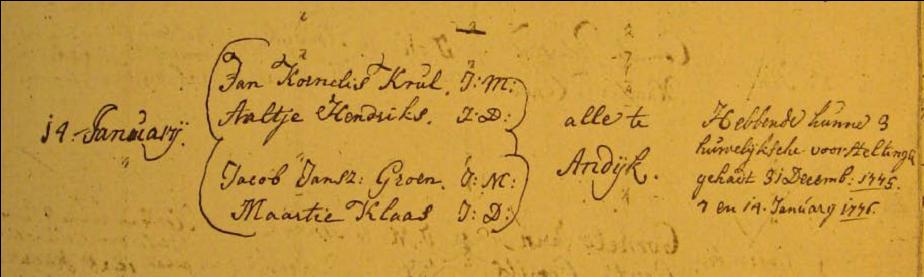 14. Januarij.
Jan Kornelis Krul. J: M:
Aaltje Hendriks. J: D:
Jacob Jansz: Groen. J: M:
Maartie Klaas J: D:
alle te
Andijk.
Hebbende hunne 3
huwelijksche voorstellingẽ
gehadt 31 Decemb: 1775.
7 en 14. Januarij 1776.